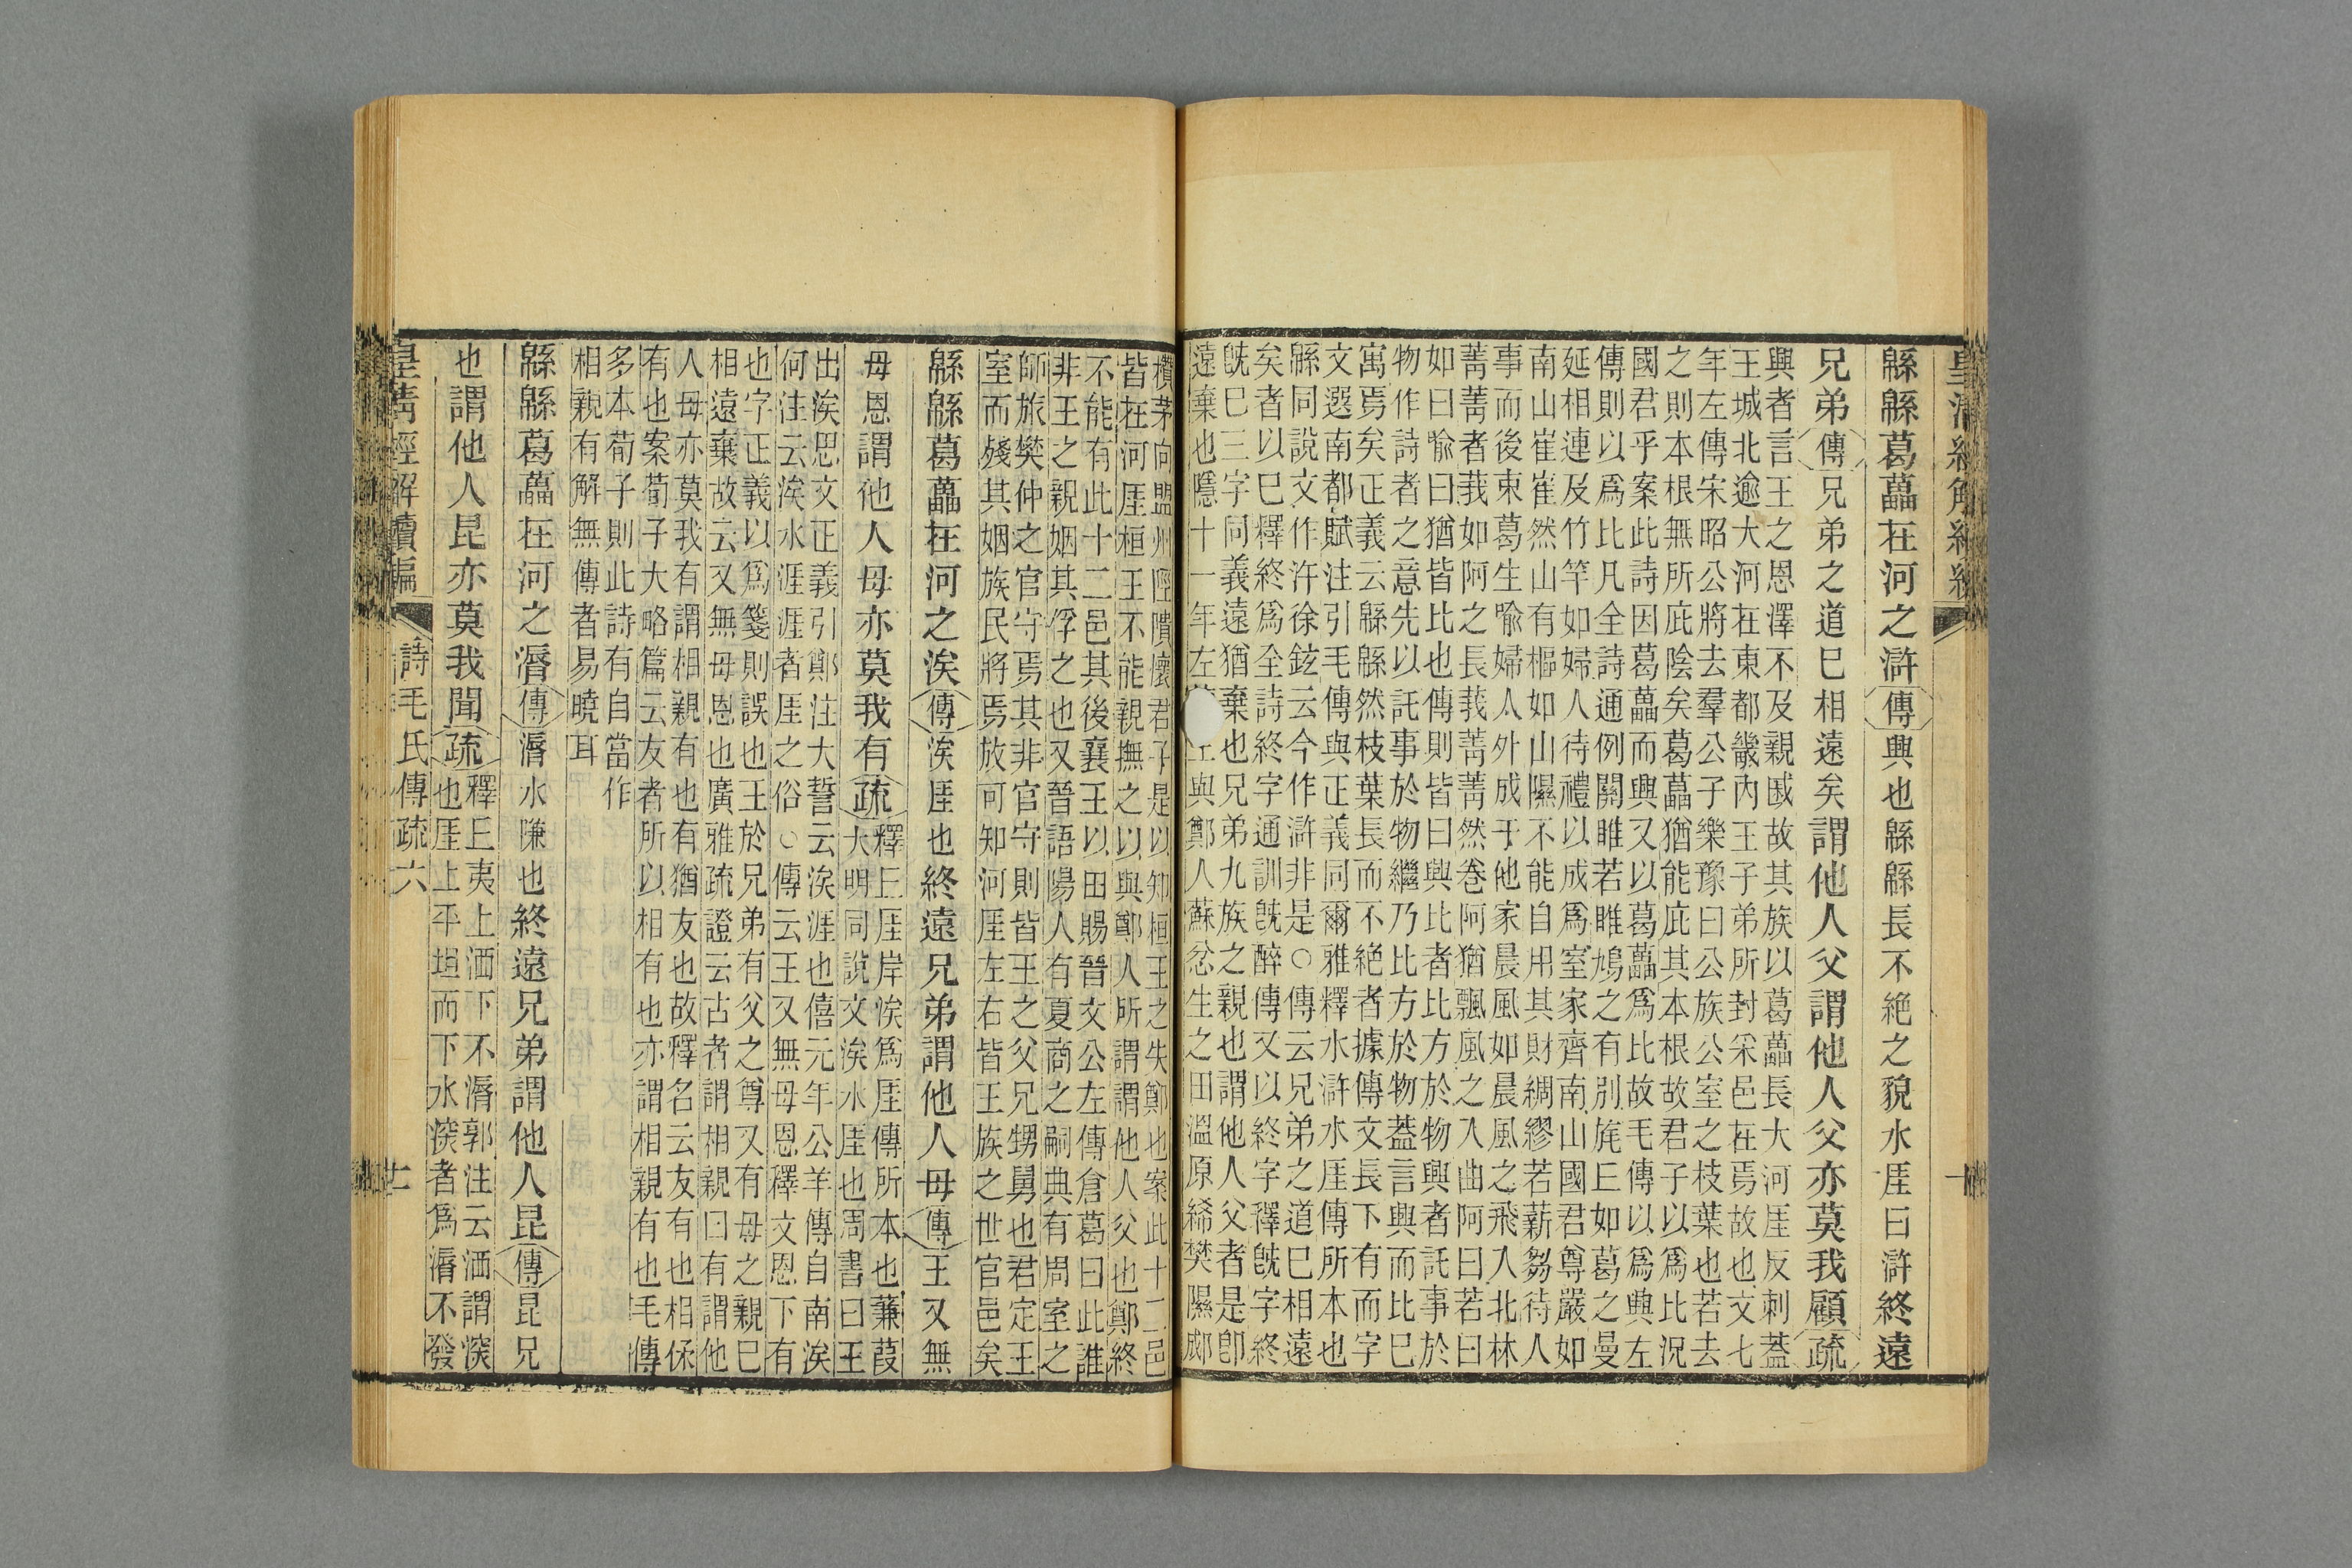 緜緜葛藟在河之滸傳興也緜緜長不絕之貌水厓曰滸終遠
兄弟傳兄弟之道已相遠矣謂他人父謂他人父亦莫我顧疏
興者言王之恩澤不及親戚故其族以葛藟長大河厓反刺蓋
王城北逾大河在東都畿內王子弟所封采邑在焉故也文七
年左傳宋昭公將去羣公子樂豫曰公族公室之枝葉也若去
之則本根無所庇陰矣葛藟猶能庇其本根故君子以爲比況
國君乎案此詩因葛藟而興又以葛藟爲比故毛傳以爲興左
傳則以爲比凡全詩通例關睢若睢鳩之有別旄丘如葛之曼
延相連及竹竿如婦人待禮以成爲室家齊南山國君尊嚴如
南山崔崔然山有樞如山隰不能自用其財綢繆若薪芻待人
事而後束葛生喻婦人外成于他家晨風如晨風之飛入北林
菁菁者莪如阿之長莪菁菁然卷阿猶飄風之入曲阿曰若曰
如曰喻曰猶皆比也傳則皆曰興比者比方於物興者託事於
物作詩者之意先以託事於物繼乃比方於物蓋言興而比已
寓焉矣正義云緜緜然枝葉長而不絕者據傳文長下有而字
文選南都賦注引毛傳與正義同爾雅釋水滸水厓傳所本也
緜同說文作汻徐鉉云今作滸非是○傳云兄弟之道已相遠
矣者以已釋終爲全詩終字通訓旣醉傳又以終字釋旣字終
旣已三字同義遠猶棄也兄弟九族之親也謂他人父者是卽
遠棄也隱十一年左與鄭人蘇忿生之田溫原絺樊隰郕
欑茅向盟州陘隤懷君子是以知桓王之失鄭也案此十二邑
皆在河厓桓王不能親撫之以與鄭人所謂謂他人父也鄭終
不能有此十二邑其後襄王以田賜晉文公左傳倉葛曰此誰
非王之親姻其俘之也又晉語陽人有夏商之嗣典有周室之
師旅樊仲之官守焉其非官守則皆王之父兄甥舅也君定王
室而殘其姻族民將焉放可知河厓左右皆王族之世官邑矣
緜緜葛藟在河之涘傳涘厓也終遠兄弟謂他人母傳王又無
母恩謂他人母亦莫我有疏釋丘厓岸涘爲厓傳所本也蒹葭
大明同說文涘水厓也周書曰王
出涘思文正義引鄭注大誓云涘涯也僖元年公羊傳自南涘
何注云涘水涯涯者厓之俗○傳云王又無母恩釋文恩下有
也字正義以爲箋則誤也王於兄弟有父之尊又有母之親已
相遠棄故云又無母恩也廣雅疏證云古者謂相親曰有謂他
人母亦莫我有謂相親有也有猶友也故釋名云友有也相保
有也案荀子大略篇云友者所以相有也亦謂相親有也毛傳
多本荀子則此詩有自當作
相親有解無傳者易曉耳
緜緜葛藟在河之漘傳漘水隒也終遠兄弟謂他人昆傳昆兄
也謂他人昆亦莫我聞疏釋丘夷上洒下不漘郭注云洒謂深
也厓上平坦而下水深者爲漘不發
皇清經解續編 詩毛氏傳疏六